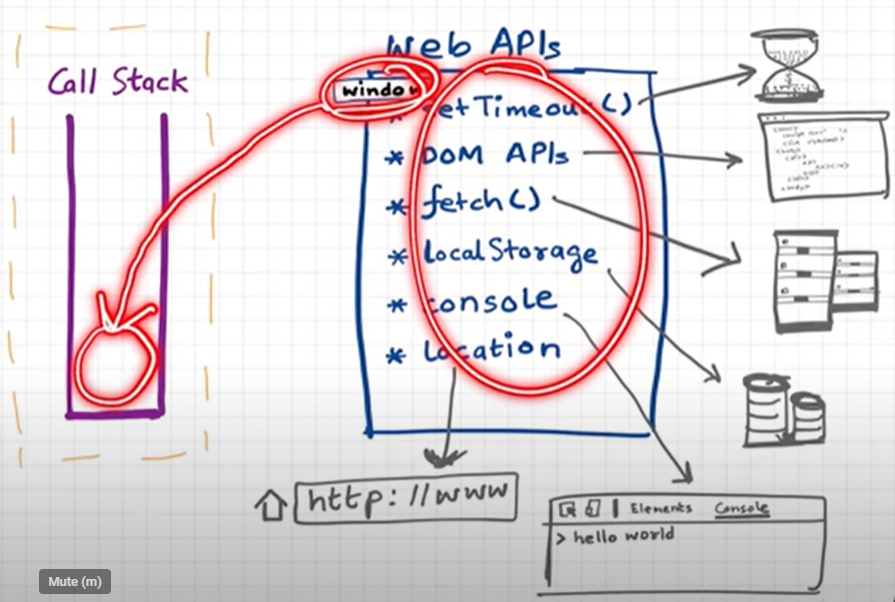 Web APIs
Call Stack
window
* setTimeout()
* DOM APIs
* fetch()
* localStorage
* console
* Location
http://www
Elements Console
> hello world
Mute (m)